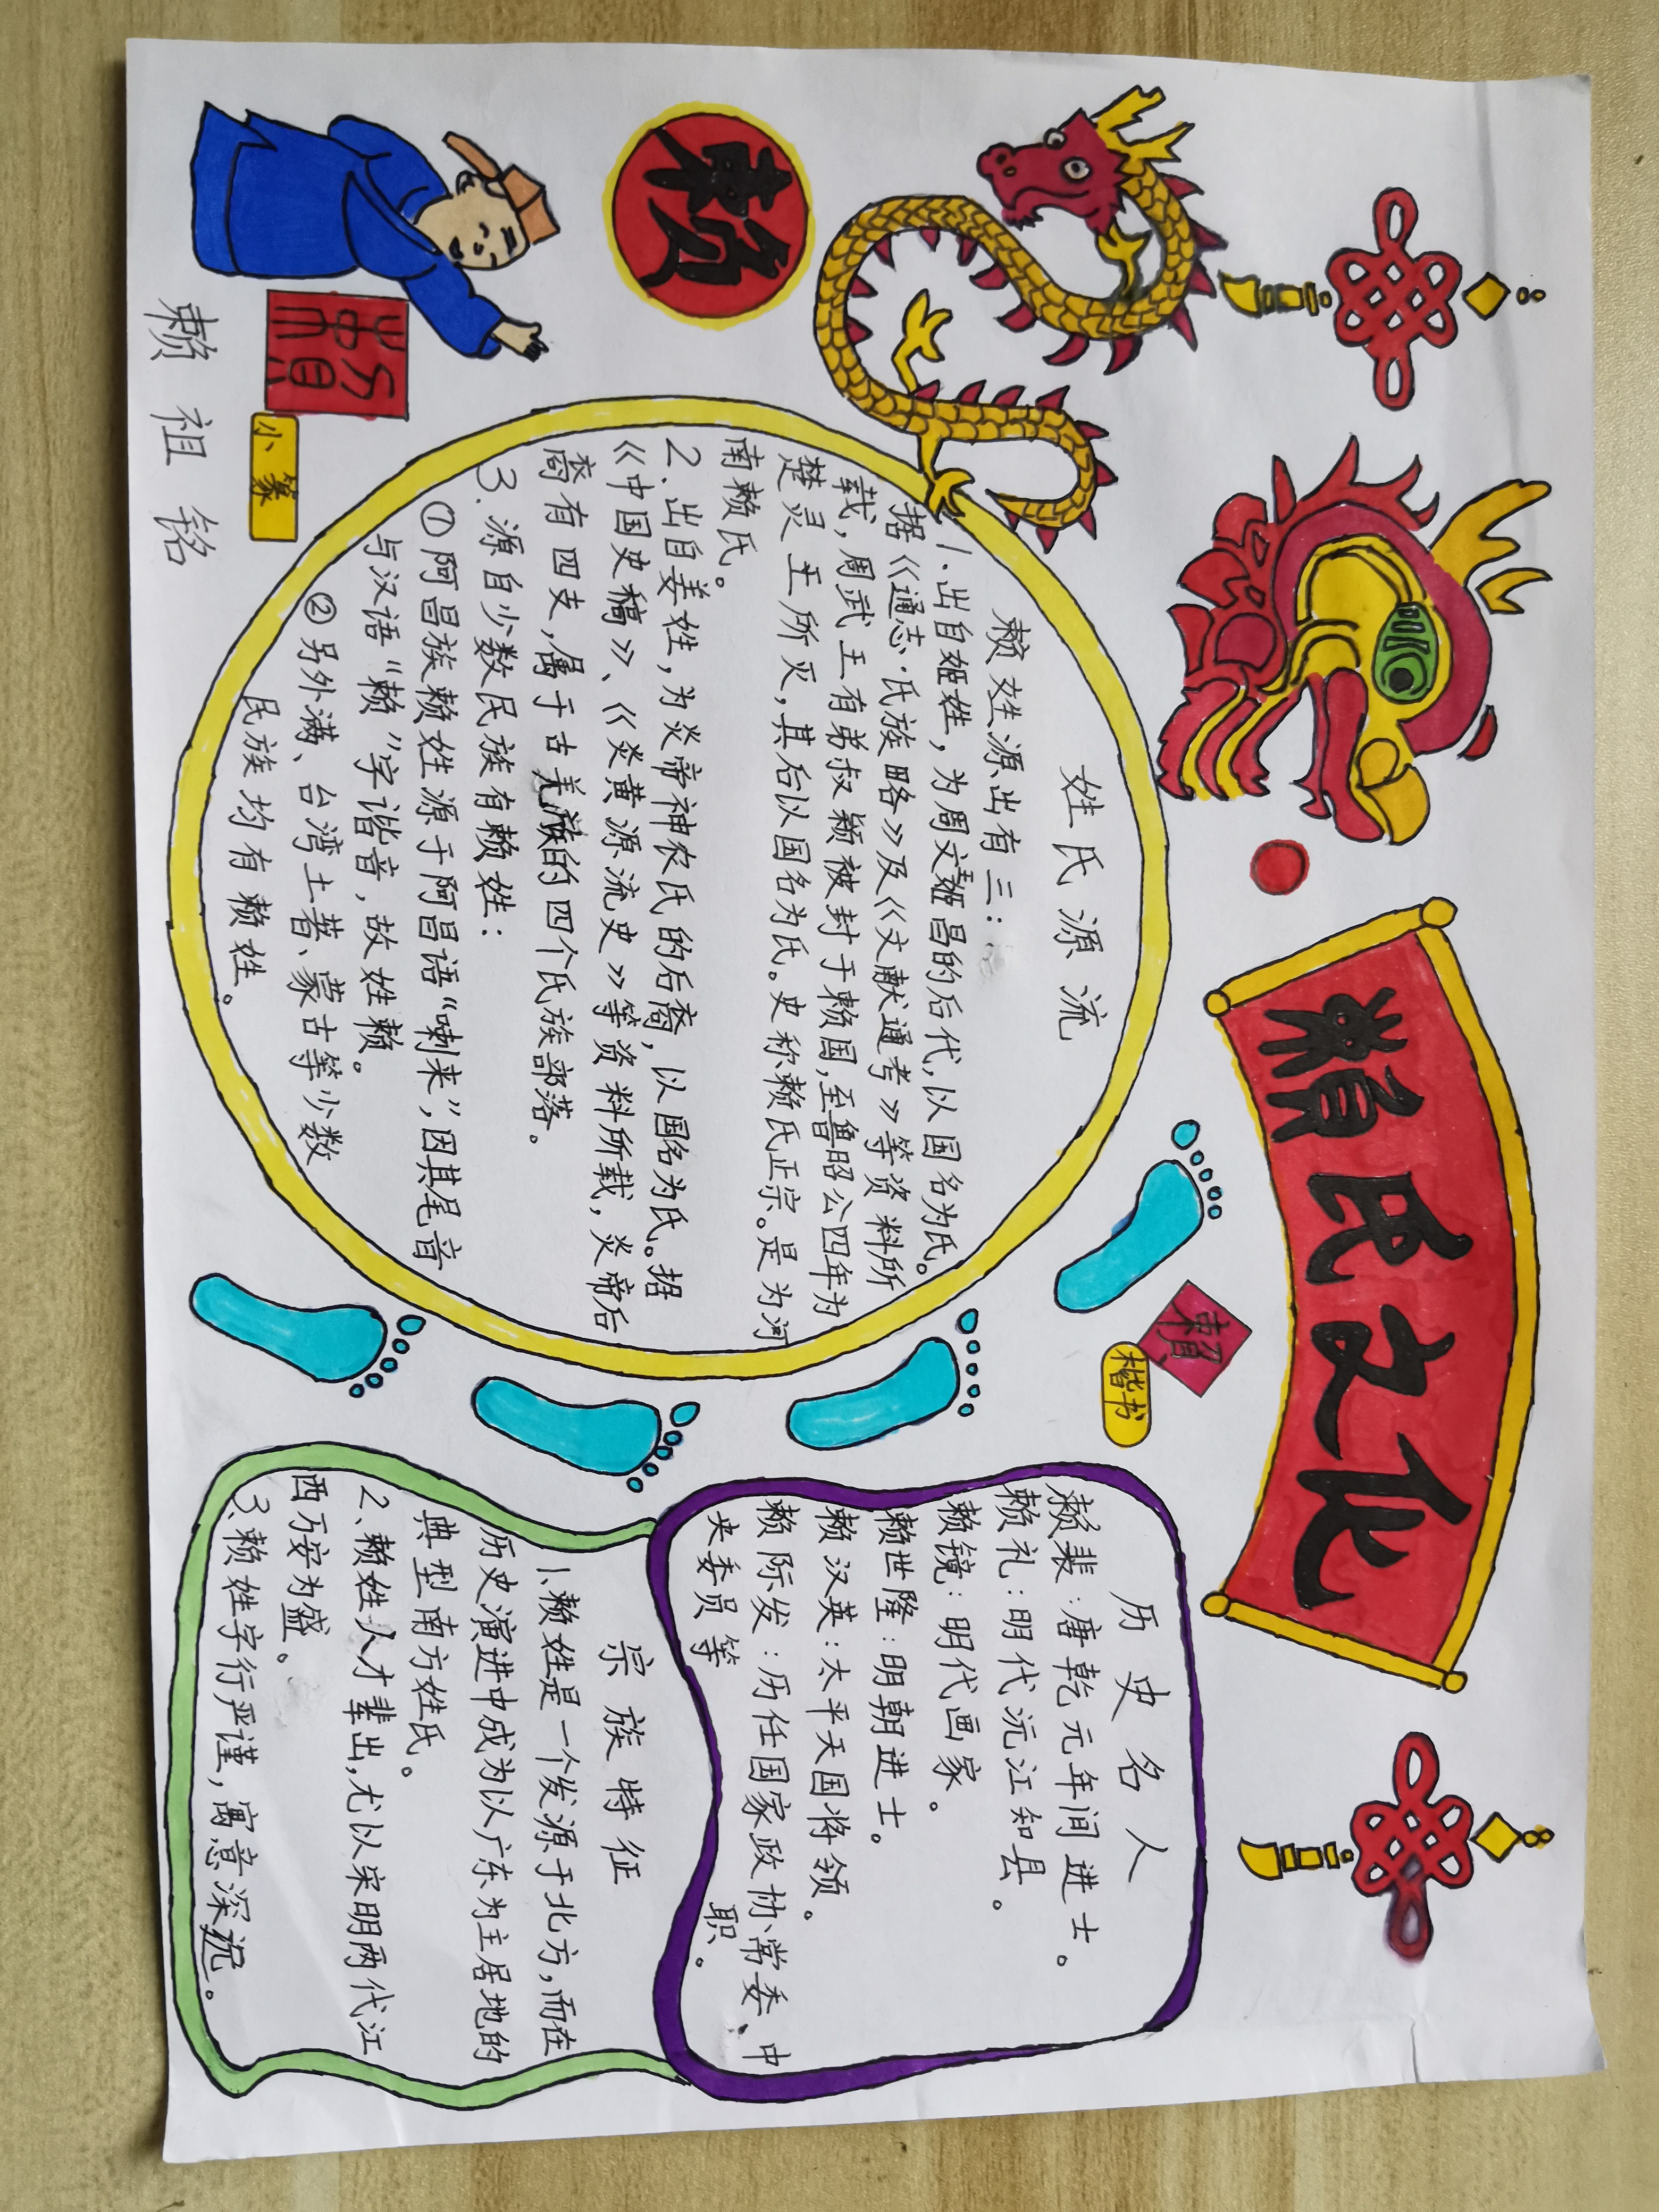 賴氏文化
赖
賴
楷书
姓氏源流
赖姓源出有三：
1.出自姬姓，为周文王姬昌的后代，以国名为氏。
据《通志·氏族略》及《文献通考》等资料所
载，周武王有弟叔颖被封于赖国，至鲁昭公四年为
楚灵王所灭，其后以国名为氏。史称赖氏正宗。是为河
南赖氏。
2.出自姜姓，为炎帝神农氏的后裔，以国名为氏。据
《中国史稿》、《炎黄源流史》等资料所载，炎帝后
裔有四支，属于古羌族的四个氏族部落。
3.源自少数民族有赖姓：
①阿昌族赖姓源于阿昌语“喇来”，因其尾音
与汉语“赖”字谐音，故姓赖。
②另外满、台湾土著、蒙古等少数
民族均有赖姓。
历史名人
赖棐：唐乾元年间进士。
赖礼：明代沅江知县。
赖镜：明代画家。
赖世隆：明朝进士。
赖汉英：太平天国将领。
赖际发：历任国家政协、常委、中
央委员等职。
宗族特征
1、赖姓是一个发源于北方，而在
历史演进中成为以广东为主居地的
典型南方姓氏。
2、赖姓人才辈出，尤以宋明两代江
西万安为盛。
3、赖姓字行严谨，寓意深远。
賴
小篆
赖祖铭